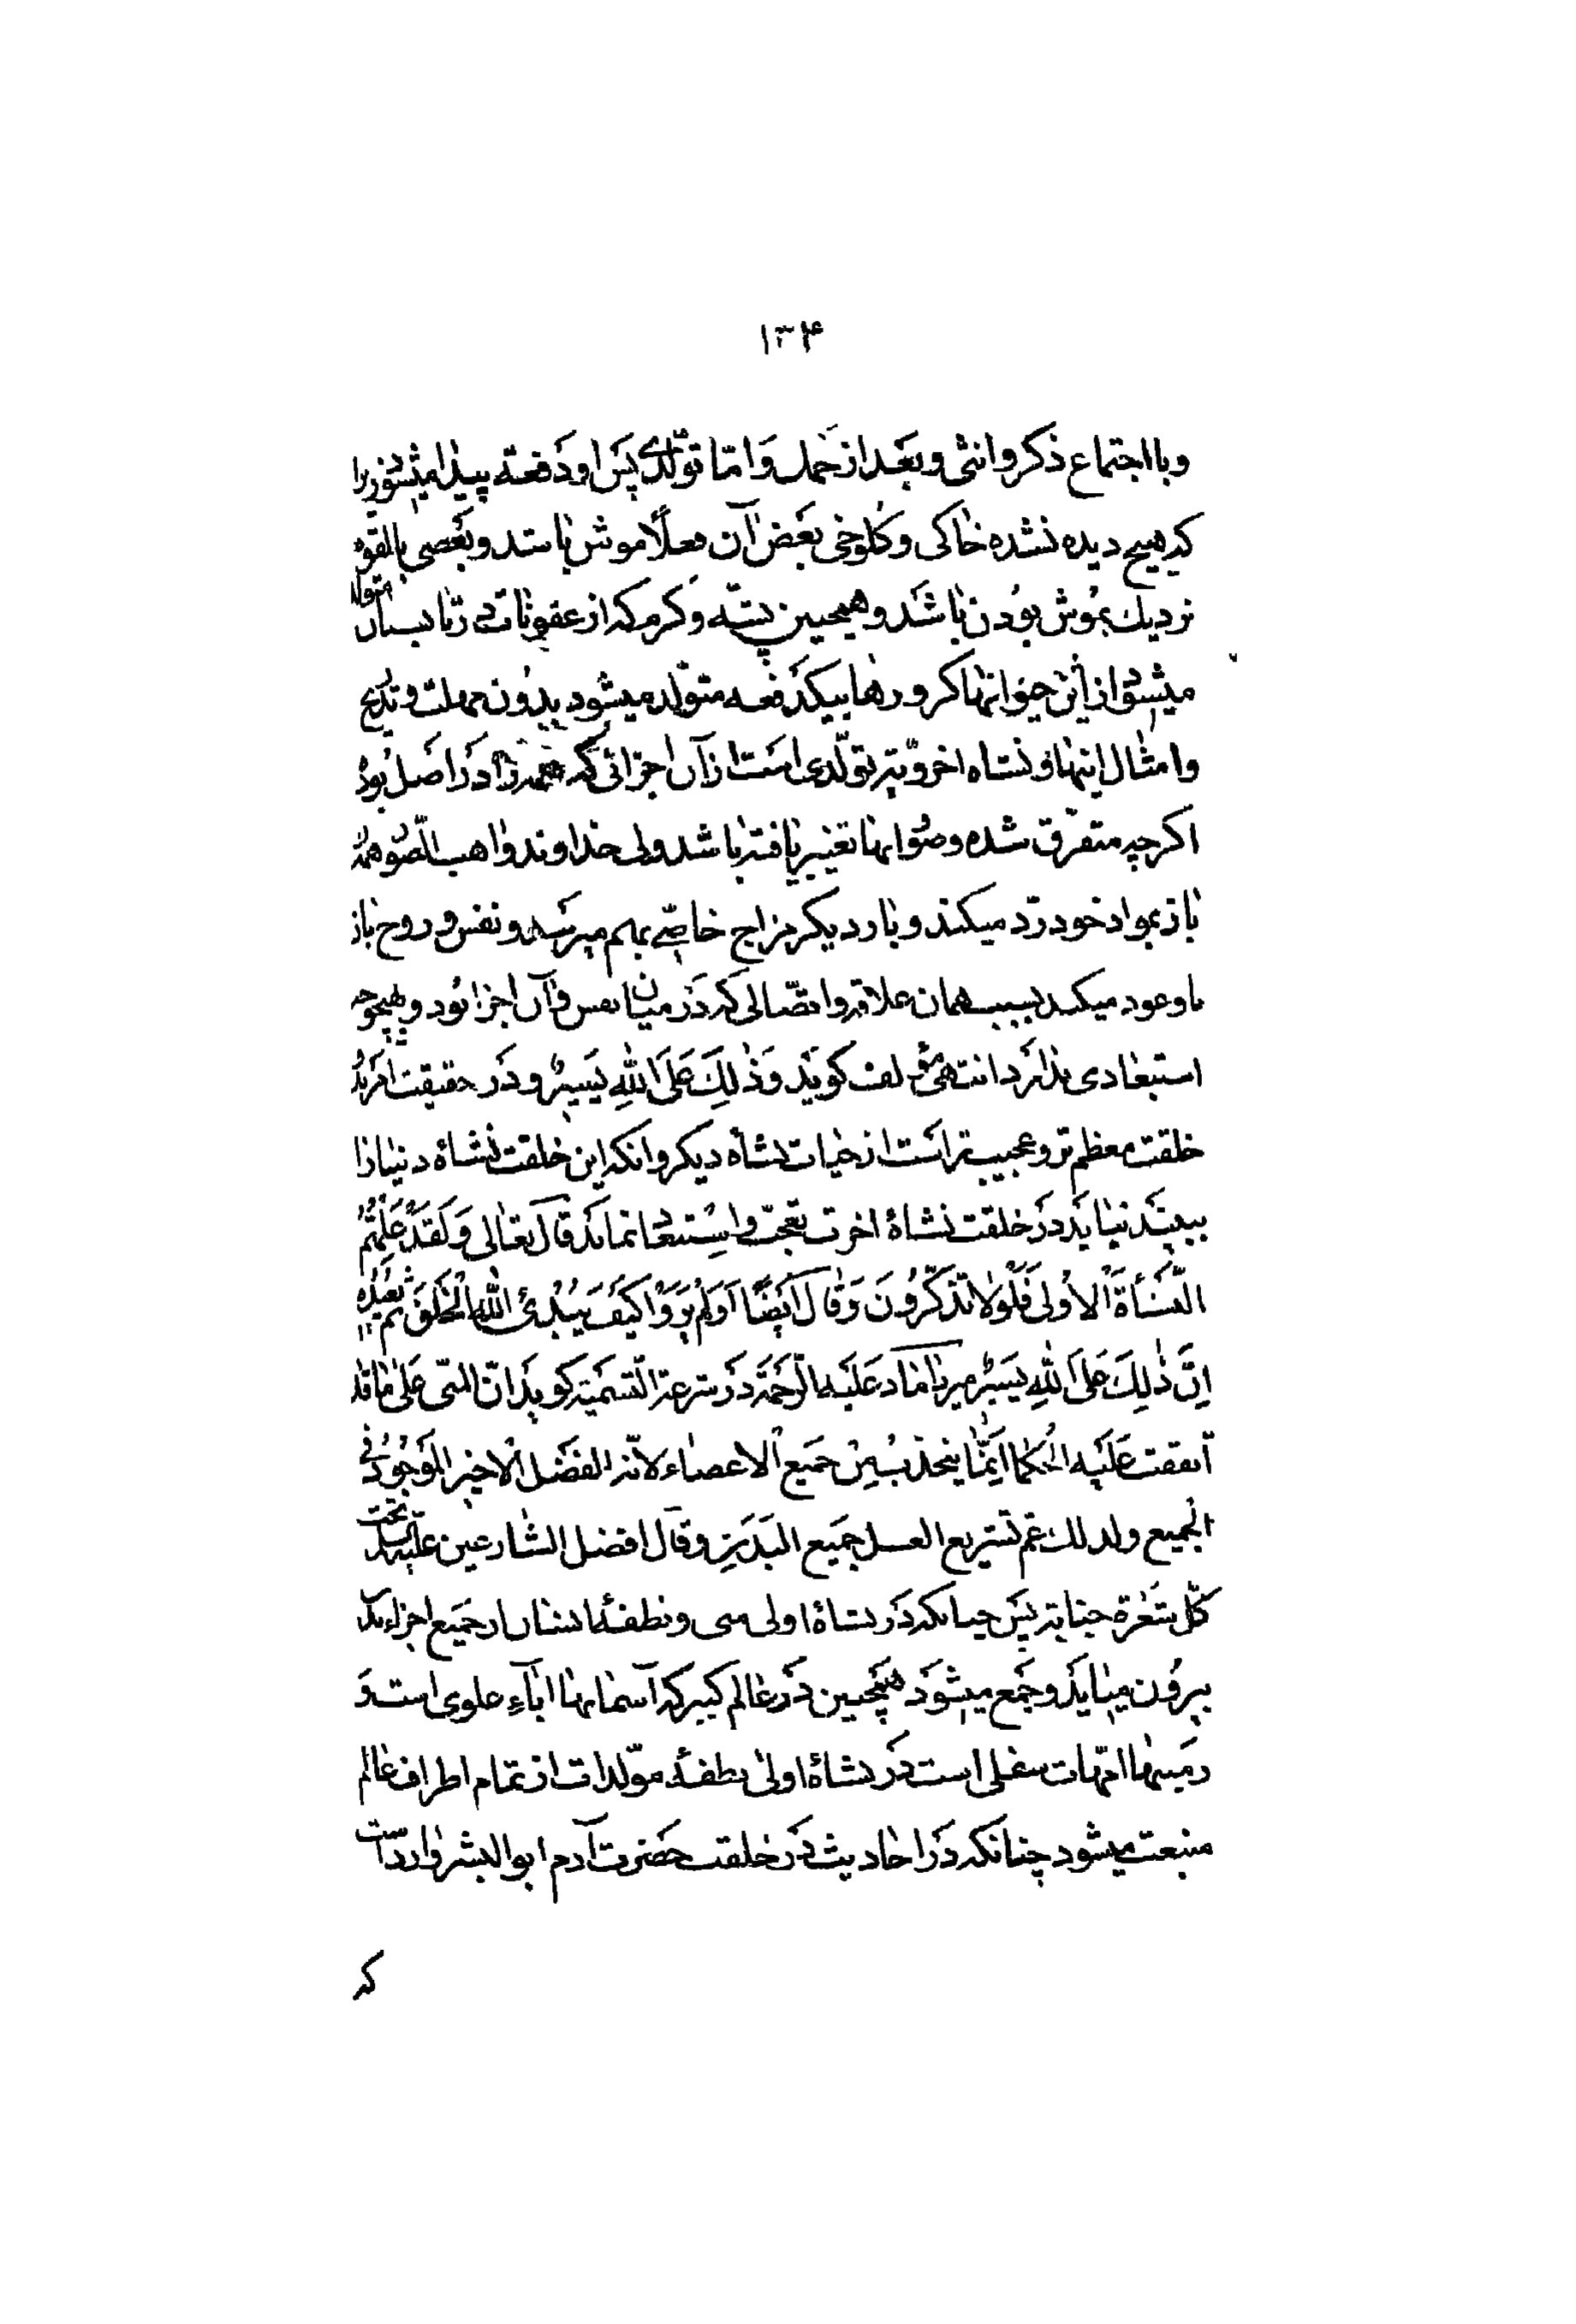 ۱۳۴
و با اجتماع ذکر و انثی و بعد از حمل و امّا تولّدی پس او دفعة پیدا میشود زیرا
که هیچ دیده نشده خاکی و کلوخی بعض آن فعلاً موش باشد و بعضی بالقوه
نزدیک بموش بودن باشد و همچنین پشّه و کرم که از عفونات در تابستان متولد
میشود از این حیوانها کرورها بیکدفعه متولّد میشود بدون مهلت و تدریج
و امثال اینها و نشاه اخرویّه تولّدی است از آن اجزائی که در اصل بود
اگرچه متفرّق شده و صوَر انها تغییر یافته باشد ولی خداوند واهب الصّور همه
باز بمواد خود ردّ میکند و بار دیگر مزاج خاصّی بهم میرسد و نفس و روح باز
باو عود میکند بسبب همان علاقه و اتصّالی که در میان نفس و آن اجزا بود و بهیچوجه
استبعادی ندارد انتهی مؤلف کوید وَذٰلِكَ عَلَى اللهِ يَسيرٌ و در حقیقت
خلقت معظم‌تر و عجیب‌تر است از حیات نشاه دیگر و انکه این خلقت نشاهٔ دنیا را
ببیند نباید در خلقت نشاهٔ اخرت تعجّب و استبعاد نماید قال تعالی وَلَقَدْ عَلِمْتُمُ
النَّشْأَةَ الْأُولى فَلَوْلا تَذَكَّرُونَ وَ قالَ اَيضًا اَوَلَمْ يَرَوْا كَيْفَ يُبْدِئُ اللهُ الْخَلْقَ ثُمَّ يُعيدُهُ
اِنَّ ذٰلِكَ عَلَى اللهِ يَسيرٌ میر داماد علیه الرّحمة در شرعة التّسمیة کوید انّ المنی علی ما قد
اتفقت علیه الحکما انّما ینجذب من جمیع الاعضاء لانّه الفضل الاخیر الموجود فی
الجمیع ولذلک عمّ تشریع الغسل جمیع البدن و قال افضل الشّارعین علیه السلم تحت
کلّ شعرة جنابة پس چنانکه در نشاهٔ اولی منی و نطفهٔ انسان از جمیع اجزاء بدن
بیرون میاید و جمع میشود همچنین در عالم کبیر که آسمانها اباءِ علوی است و
زمینها امّهات سفلی است در نشاهٔ اولی نطفهٔ موّلدات از تمام اطراف عالم
منبعث میشود چنانکه در احادیث در خلقت حضرت آدم ابوالبشر وارد است
که